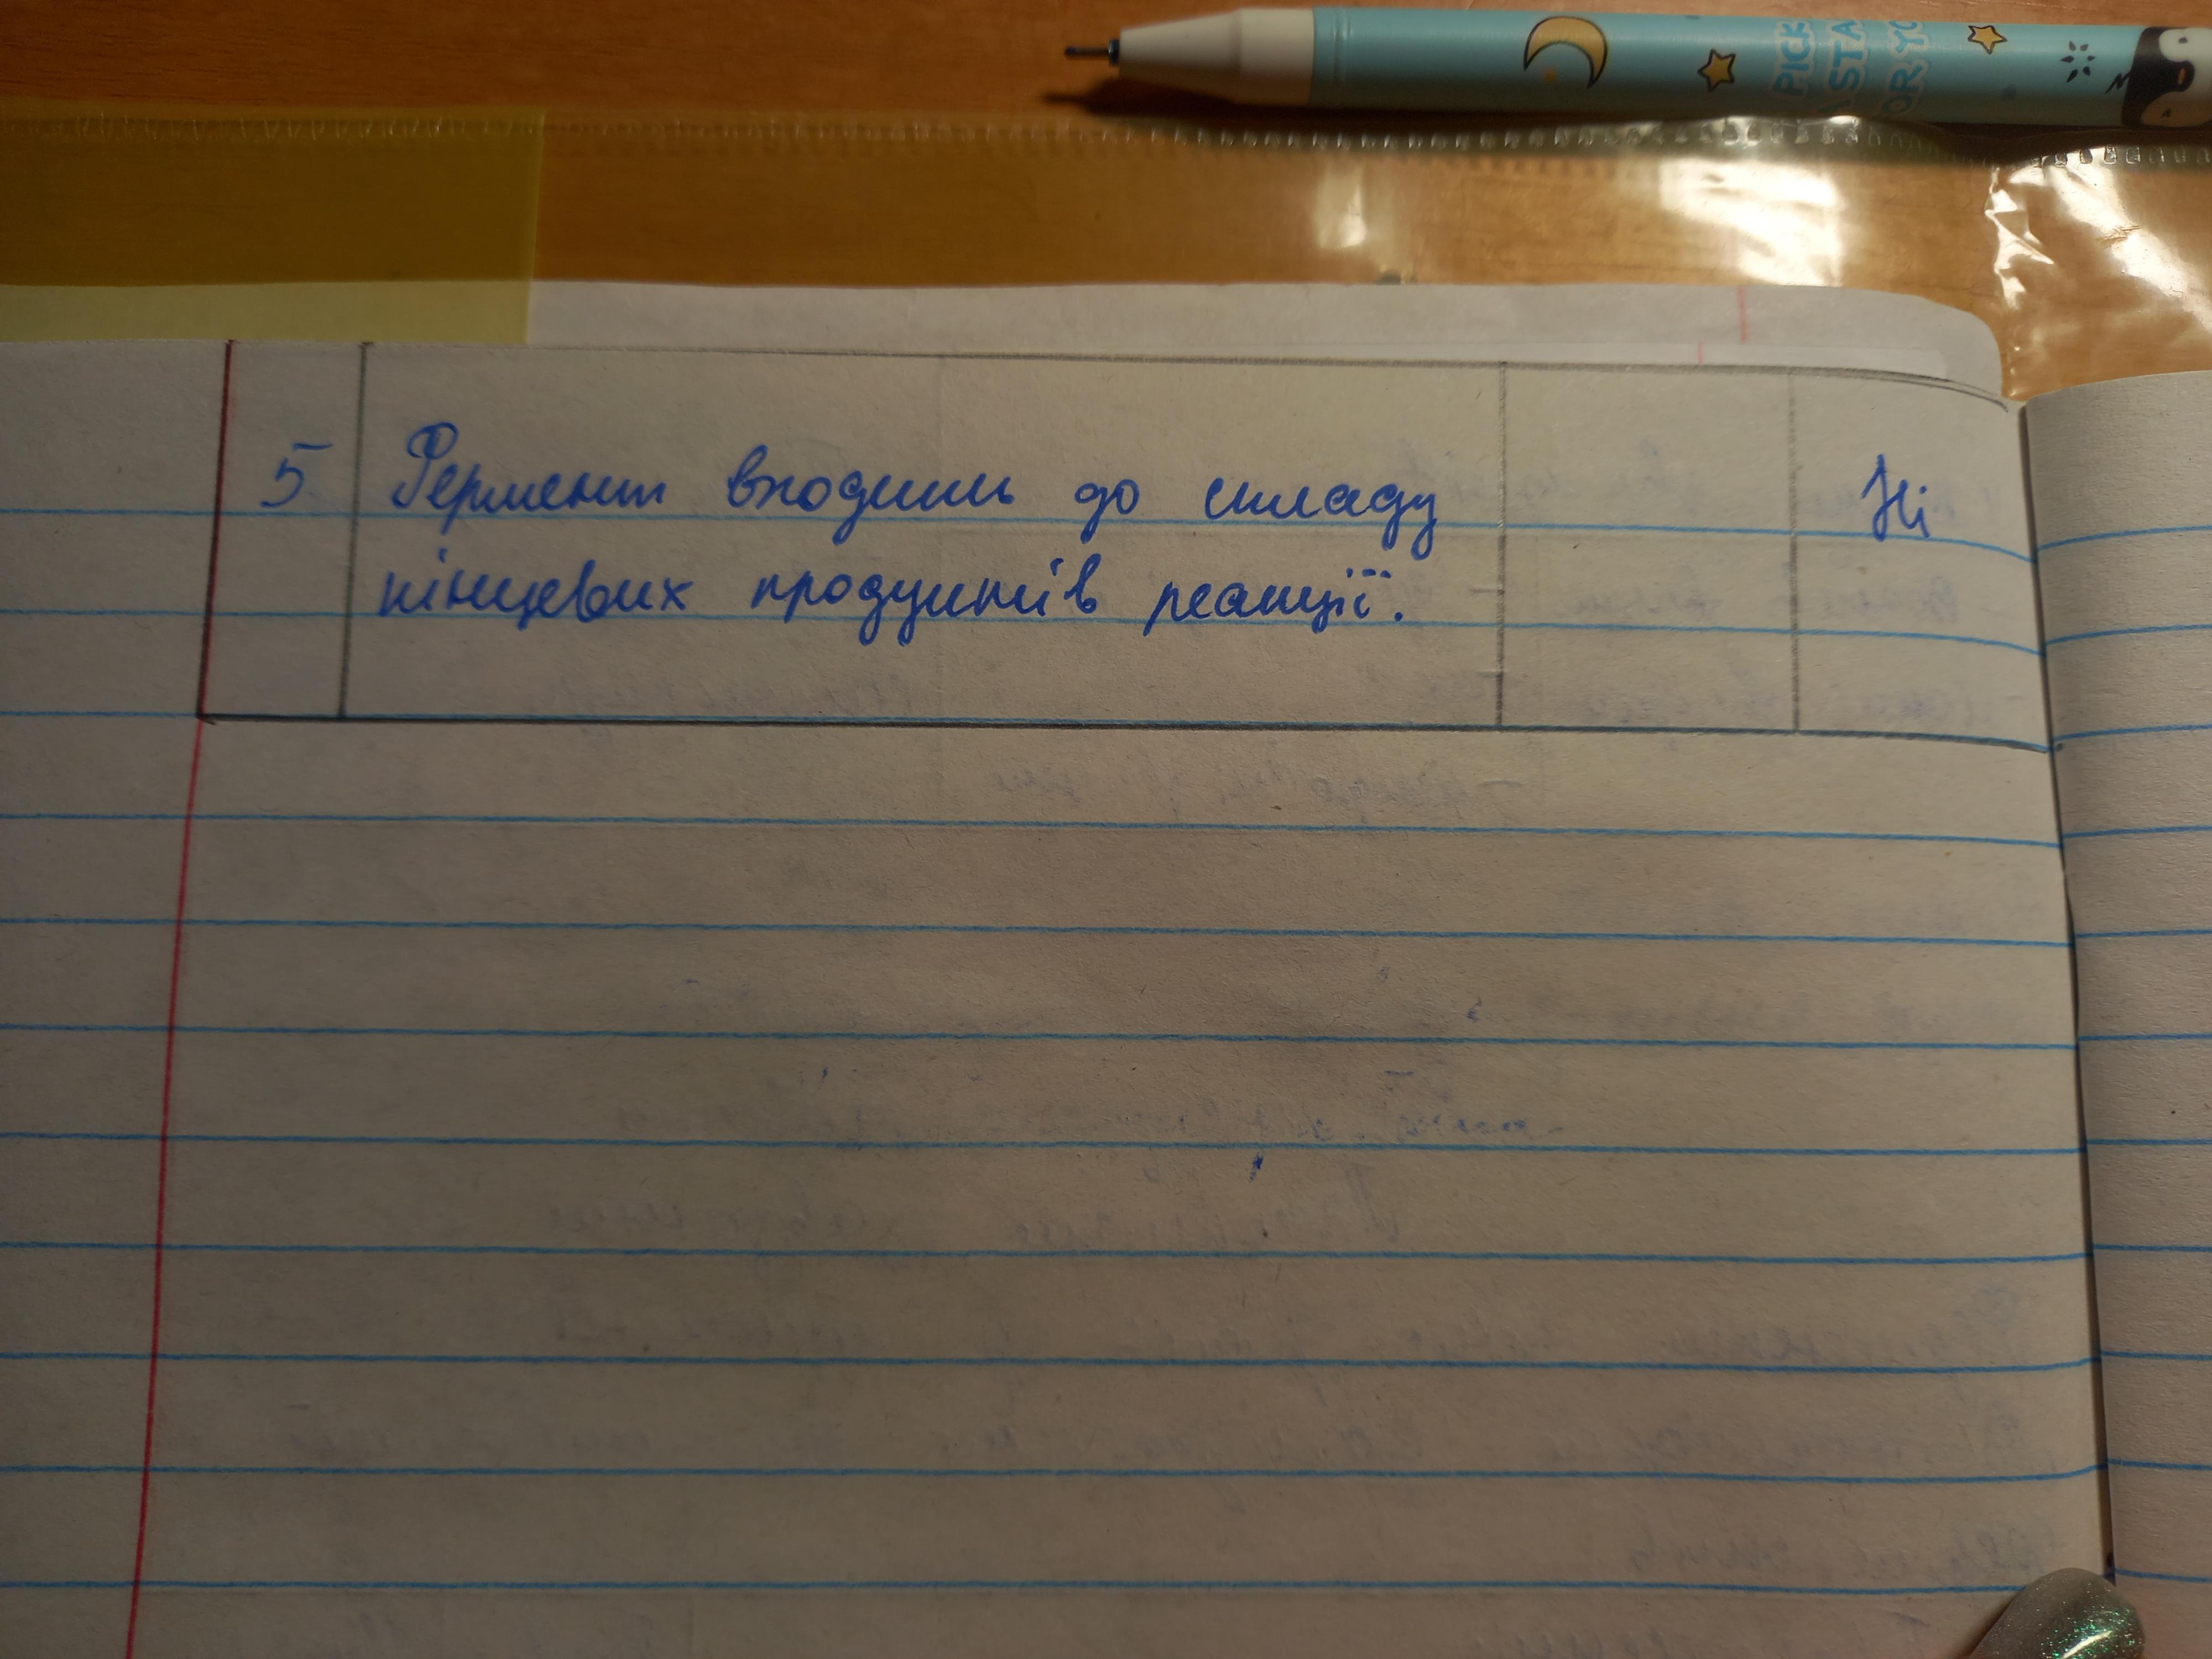 5 Фермент входить до складу Ні
кінцевих продуктів реакції.
PICK